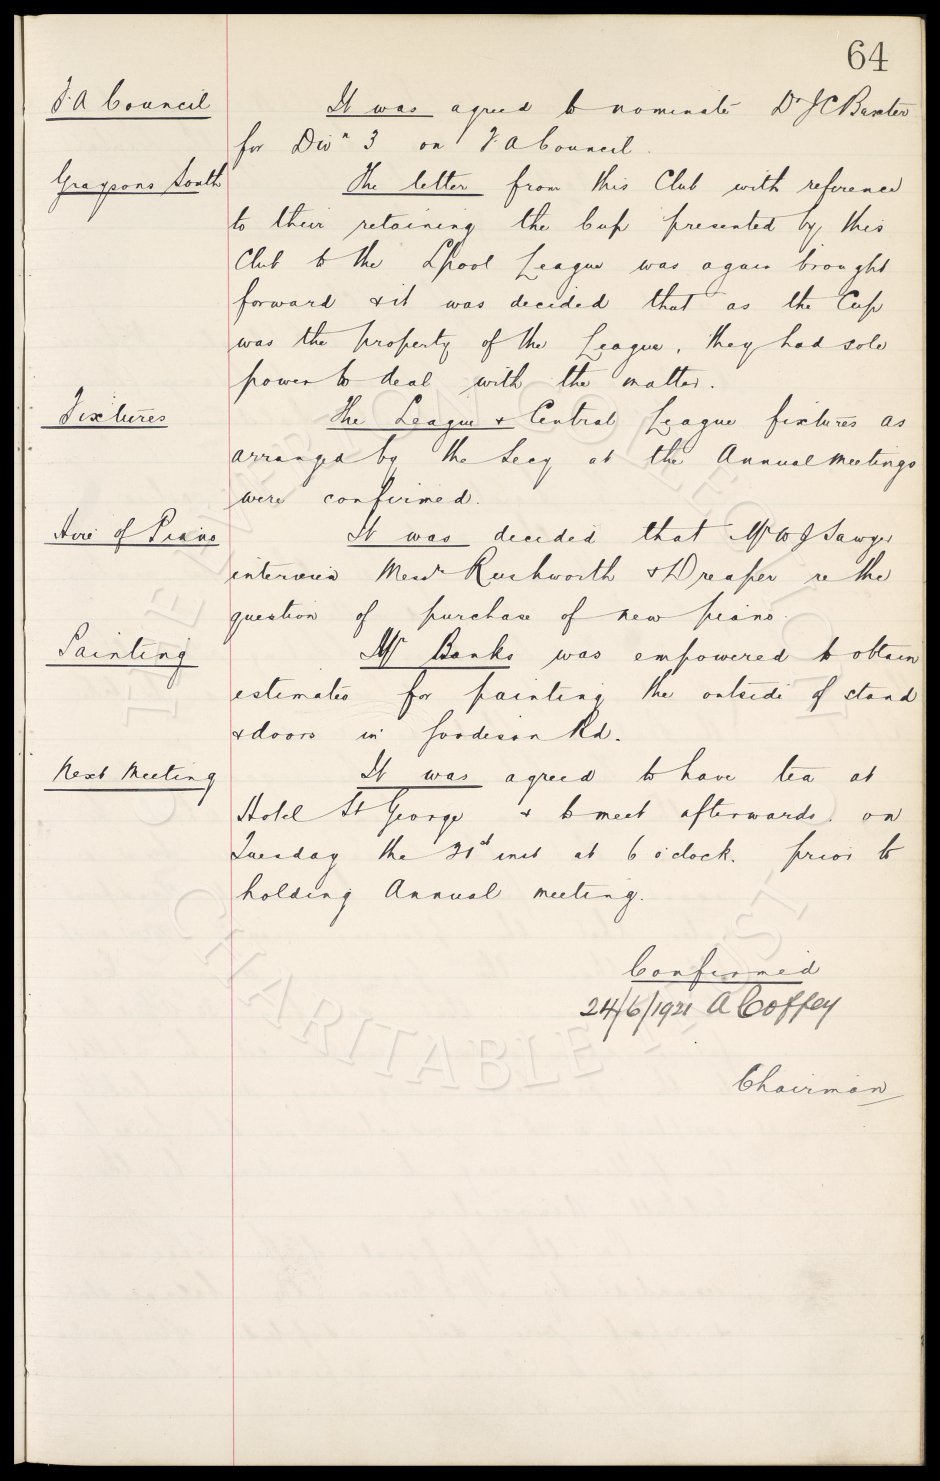 64
F. A Council
It was agreed to nominate Dr J C Baxter
for Divn 3 on F A Council.
Graysons South
The letter from this Club with reference
to their retaining the Cup presented by this
Club to the Lpool League was again brought
forward & it was decided that as the Cup
was the property of the League, they had sole
power to deal with the matter.
Fixtures
The League & Central League fixtures as
arranged by the Secy at the Annual Meetings
were confirmed.
Hire of Piano
It was decided that Mr W J Sawyer
interview Messrs Rushworth & Dreaper re the
question of purchase of new piano.
Painting
Mr Banks was empowered to obtain
estimates for painting the outside of stand
& doors in Goodison Rd.
Next Meeting
It was agreed to have tea at
Hotel St George & to meet afterwards on
Tuesday the 21st inst at 6 o'clock. prior to
holding Annual meeting.
Confirmed
24/6/1921 A Coffey
Chairman
THE EVERTON COLLECTION
CHARITABLE TRUST